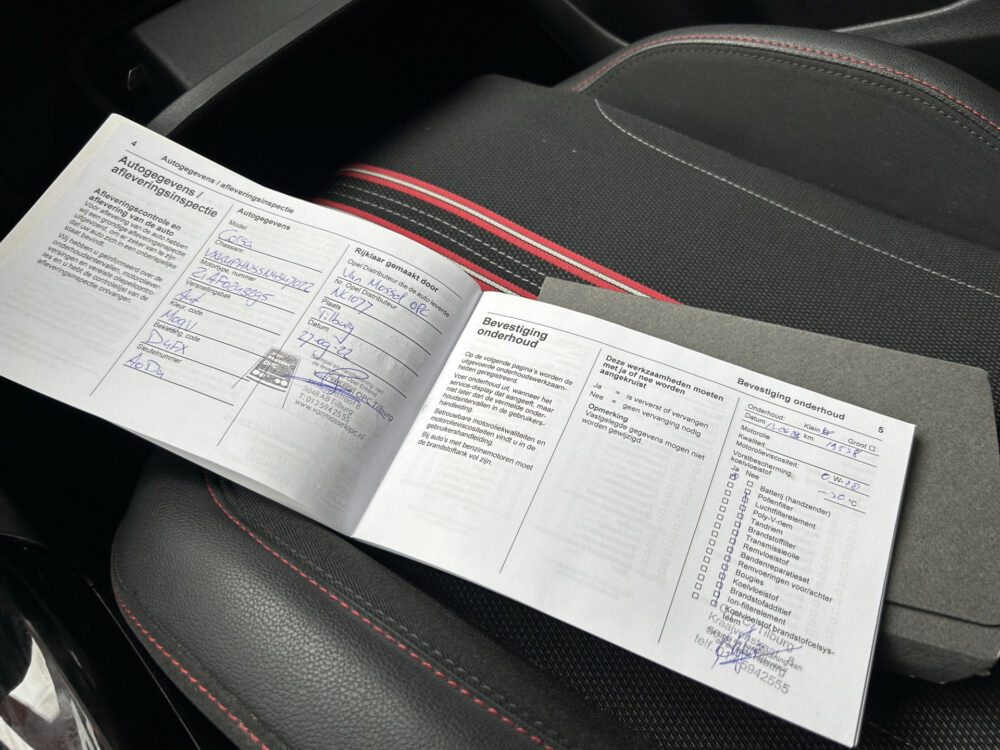 4
Autogegevens / afleveringsinspectie
Autogegevens /
afleveringsinspectie
Afleveringscontrole en
aflevering van de auto
Vóór aflevering van de auto hebben
wij een grondige afleveringsinspectie
uitgevoerd, om er zeker van te zijn
dat uw auto zich in een onberispelijke
staat bevindt.
Wij hebben u geïnformeerd over de
onderhoudsintervallen, motorolieverversingen
en vereiste oliepeilcontroles
en u hebt de controlelijst van de
afleveringsinspectie ontvangen.
Autogegevens
Model
Corsa
Chassisnr.
Motortype, nummer
Versnellingsbak
Aut
Kleur, code
Bekleding, code
D4FX
Sleutelnummer
Rijklaar gemaakt door
Opel Distributeur die de auto leverde
Van Mossel OPC
Nr. Opel Distributeur
NL1077
Plaats
Tilburg
Datum
OPC Tilburg
5048 AB Tilburg
T: 013 5942555
www.vanmosselopc.nl
Bevestiging
onderhoud
Op de volgende pagina's worden de
uitgevoerde onderhoudswerkzaamheden
geregistreerd.
Voer onderhoud uit, wanneer het
service-display dat aangeeft, maar
niet later dan de vermelde onderhoudsintervallen
in de gebruikershandleiding.
Betrouwbare motoroliekwaliteiten en
motorolieviscositeiten vindt u in de
gebruikershandleiding.
Bij auto's met benzinemotoren moet
de brandstoftank vol zijn.
Deze werkzaamheden moeten
met ja of nee worden
aangekruist
Ja = is ververst of vervangen
Nee = geen vervanging nodig
Opmerking
Vastgelegde gegevens mogen niet
worden gewijzigd.
5
Bevestiging onderhoud
Onderhoud: Klein Groot
Datum km 19538
Motorolie
Kwaliteit:
Motorolieviscositeit: 0 W-20
Vorstbescherming,
koelvloeistof -30 °C
Ja Nee
Batterij (handzender)
Pollenfilter
Luchtfilterelement
Poly-V-riem
Tandriem
Brandstoffilter
Transmissieolie
Remvloeistof
Bandenreparatieset
Remvoeringen voor/achter
Bougies
Koelvloeistof
Brandstofadditief
Ion-filterelement
Koelvloeistof brandstofcelsysteem
OPC Tilburg
Kraaivenstraat 8
telf. 013-5942555